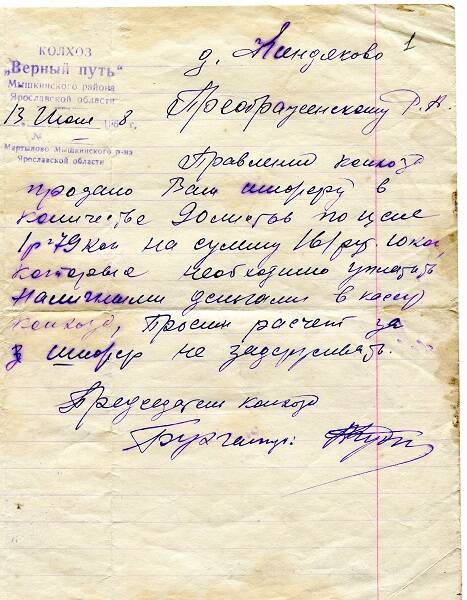 1
КОЛХОЗ
„Верный путь"
Мышкинского района
Ярославской области
13 Июля 1968 г.
№
Мартыново Мышкинского р-на
Ярославской области
д. Киндяково
Преображенскому Р. А.
Правление колхоза
продало Вам шифер в
количестве 90 листов по цене
1р 79 коп на сумму 161 руб. 10 коп,
которые необходимо уплатить
наличными деньгами в кассу
колхоза, Просим расчет за
шифер не задерживать.
Председатель колхоза
Бухгалтер: